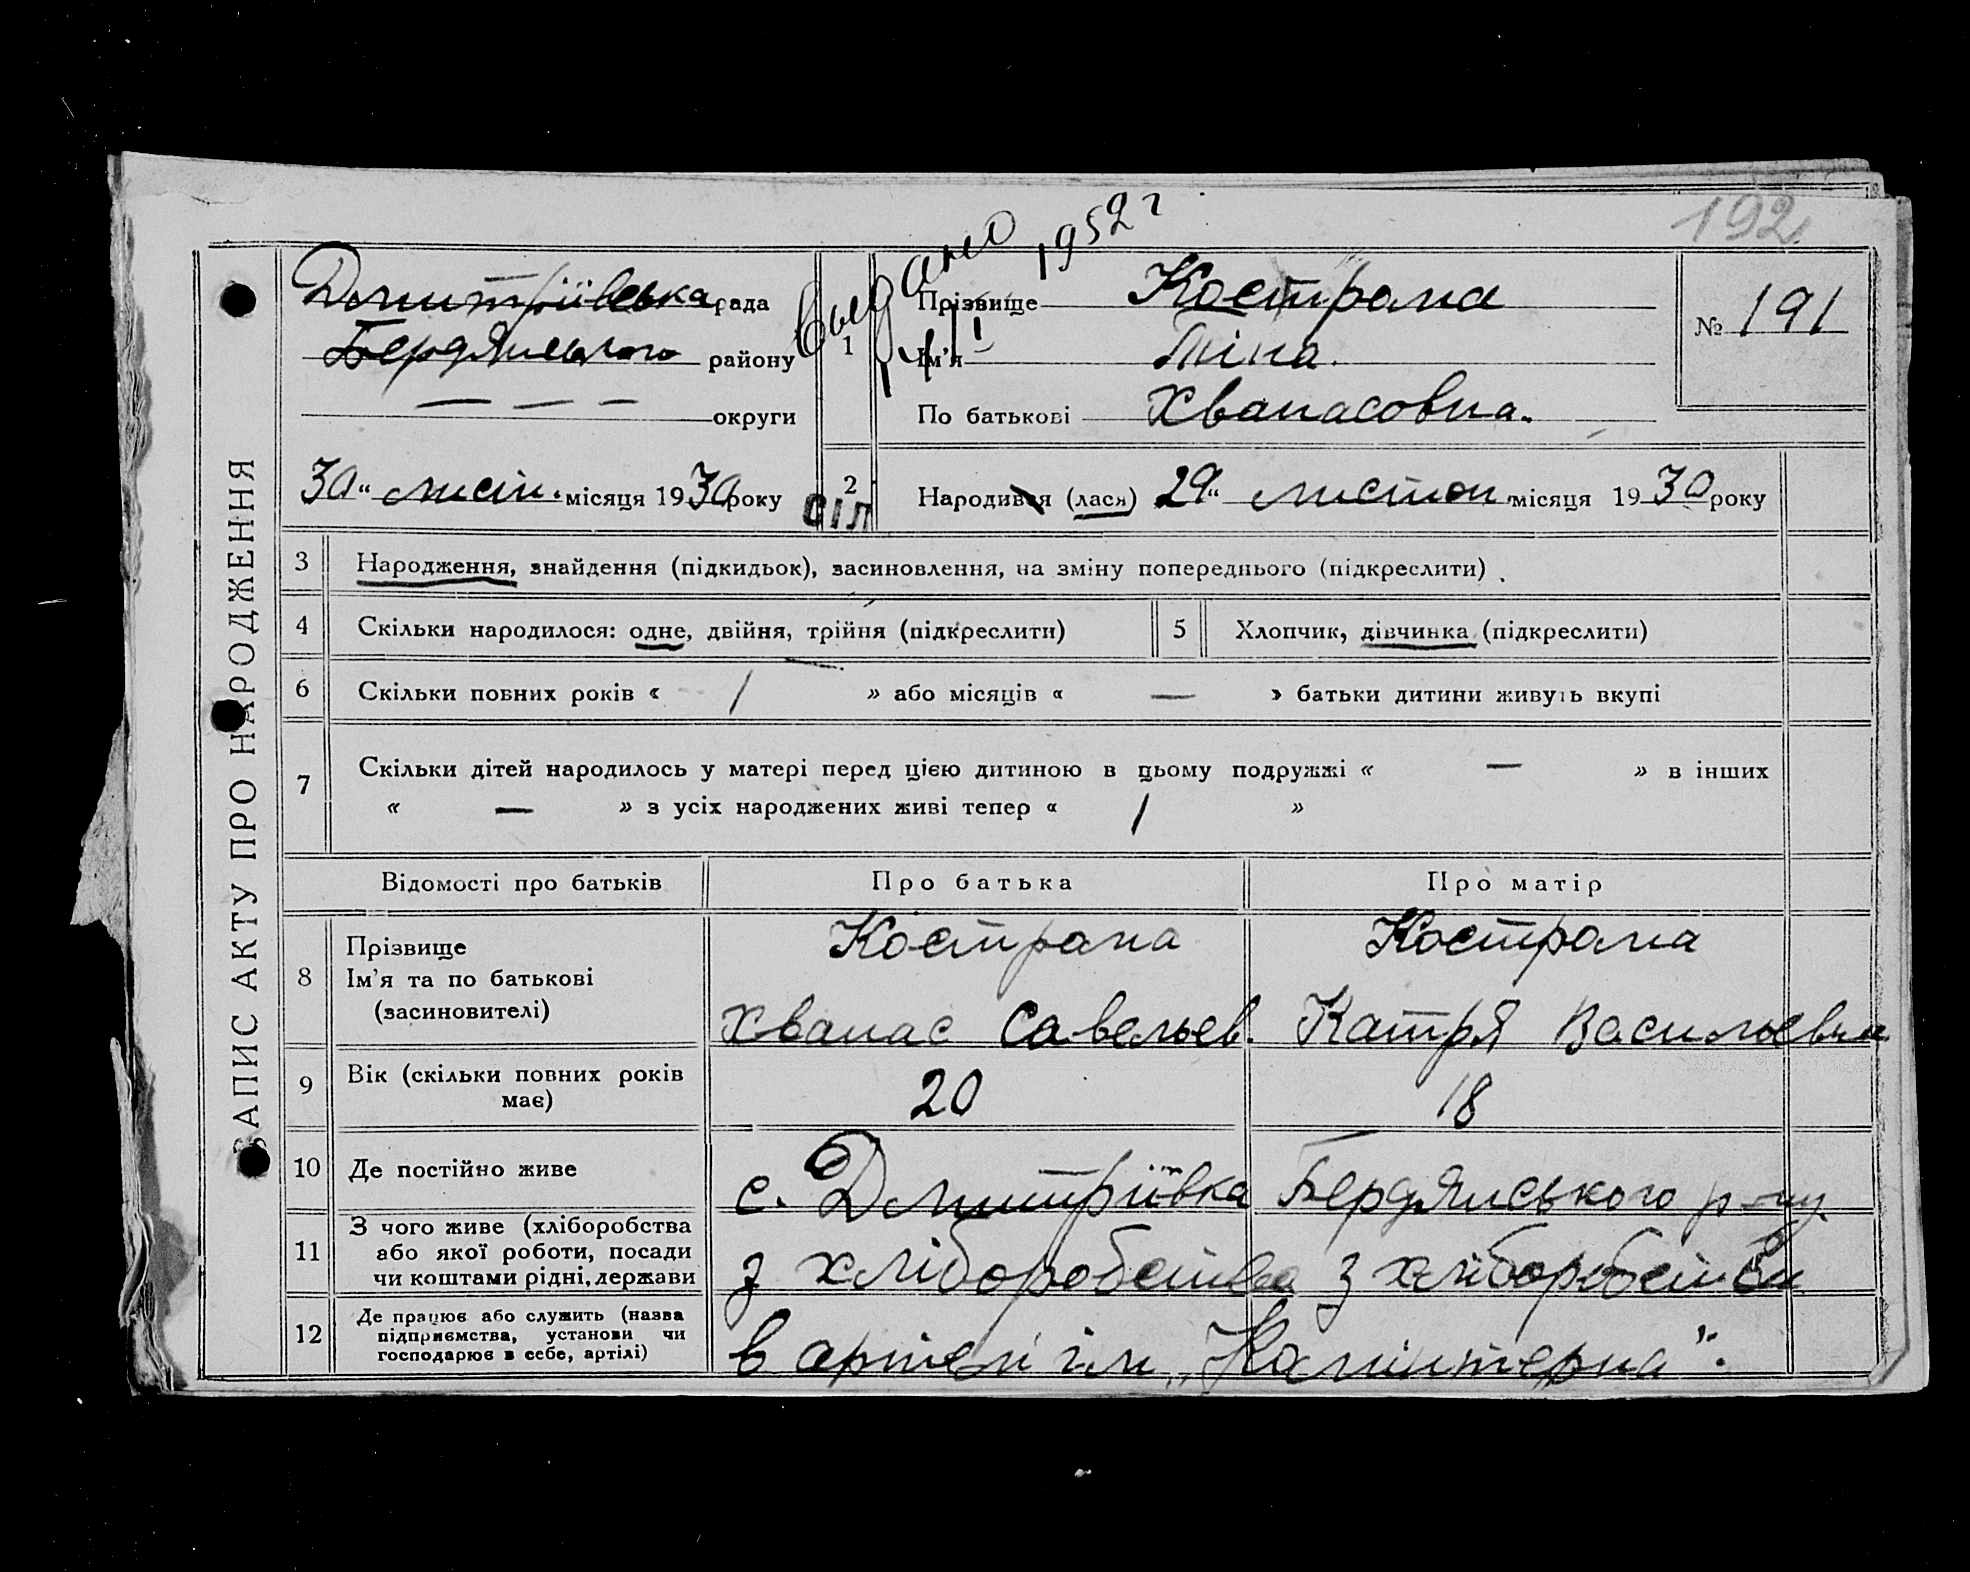 192
Выдано 1952 г
ЗАПИС АКТУ ПРО НАРОДЖЕННЯ
Дмитріївська рада
Бердянського району
— — — округи
30 „ листп. місяця 1930 року
СІЛ
1
Прізвище Кострома
Ім'я Тіна.
По батькові Хванасовна.
№ 191
2
Народився (лася) 29 „ листоп. місяця 1930 року
3 Народження, знайдення (підкидьок), засиновлення, на зміну попереднього (підкреслити)
4 Скільки народилося: одне, двійня, трійня (підкреслити)
5 Хлопчик, дівчинка (підкреслити)
6 Скільки повних років « 1 » або місяців « — » батьки дитини живуть вкупі
7 Скільки дітей народилось у матері перед цією дитиною в цьому подружжі « — » в інших
« — » з усіх народжених живі тепер « 1 »
Відомості про батьків Про батька Про матір
8 Прізвище
Ім'я та по батькові
(засиновителі)
Кострома
Хванас Савельев.
Кострома
Катря Васильевна
9 Вік (скільки повних років
має)
20 18
10 Де постійно живе
с. Дмитріївка Бердянського р-ну
11 З чого живе (хліборобства
або якої роботи, посади
чи коштами рідні, держави
з хліборобства з хліборобства
12 Де працює або служить (назва
підприємства, установи чи
господарює в себе, артілі)
в артелі ім „Комінтерна".